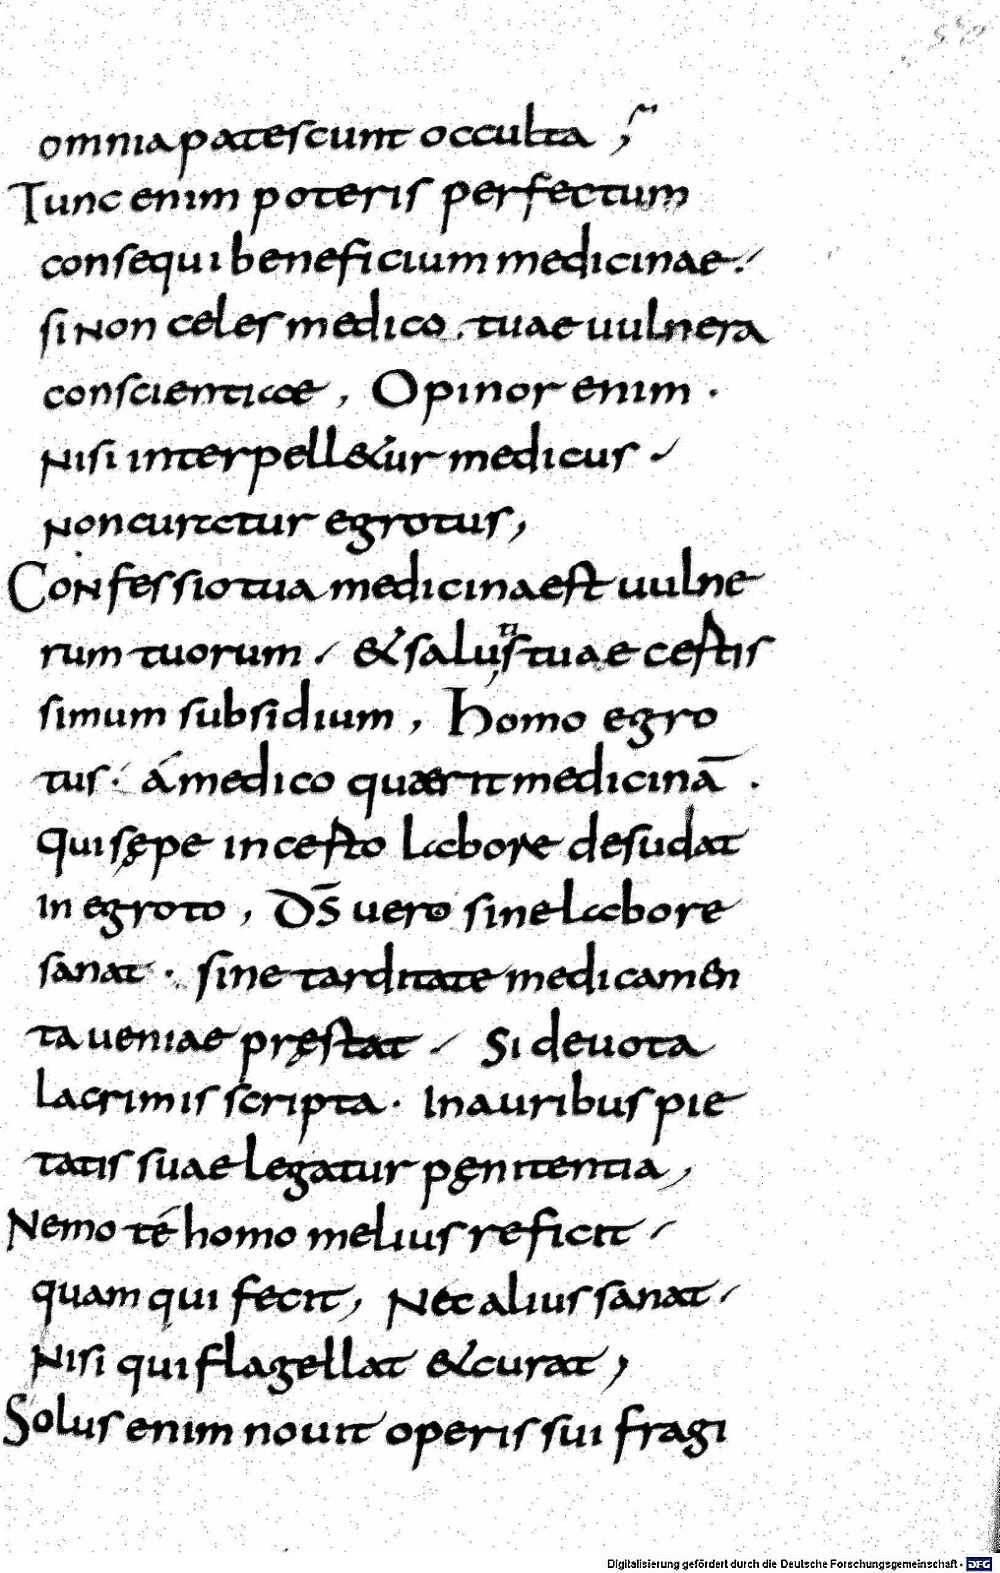 omnia patescunt occulta ;
Tunc enim poteris perfectum
consequi beneficium medicinae ./
si non celes medico . tuae uulnera
conscientiae , Opinor enim .
Nisi interpell&ur medicus ./
Non curetur egrotus ,
Confessio tua medicina est uulne
rum tuorum ./ & salutis tuae certis
simum subsidium , Homo egro
tus . á medico quaerit medicinā .
Qui sępe incerto labore desudat
in egroto , D̄s uero sine labore
sanat . sine tarditate medicamen
ta ueniae pręstat ./ Si deuota
lacrimis scripta . In auribus pie
tatis suae legatur pęnitentia ,
Nemo té homo melius reficit ./
quam qui fecit , Nec alius sanat ./
Nisi qui flagellat & curat ,
Solus enim nouit operis sui fragi
Digitalisierung gefördert durch die Deutsche Forschungsgemeinschaft - DFG